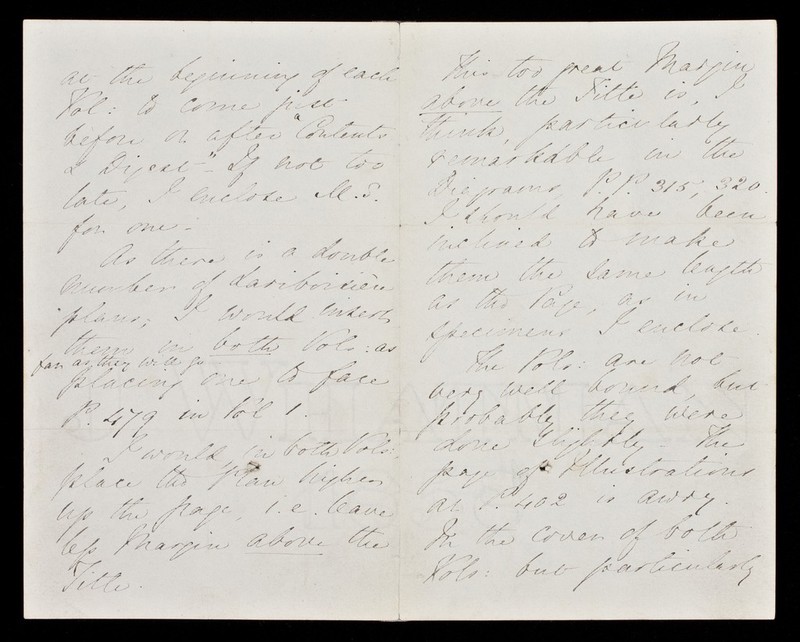 at the beginning of each
Vol: to come just
before or after "Contents
& Digest" - If not too
late, I enclose M.S.
for one.
As there is a double
number of Lariboisière
plans, I would insert
them in both Vols: as
far as they will go
placing one to face
P. 479 in Vol 1.
I would, in both Vols:
place the Plan higher
up the page, i.e. leave
less Margin above the
Title.
This too great Margin
above the Title is, I
think, particularly
remarkable in the
Diagrams, P.P. 315, 320.
I should have been
inclined to make
them the same length
as the Page, as in
specimens I enclose.
The Vols: are not
very well bound, but
probably they were
done slightly - The
page of Illustrations
at P. 402 is awry.
In the cover of both
Vols: but particularly